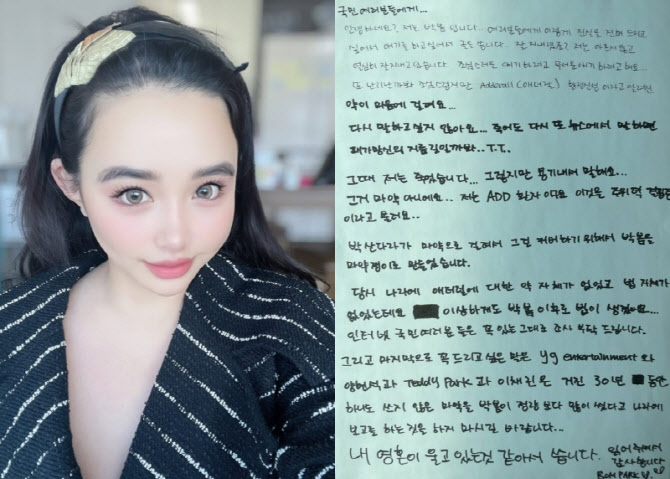 국민 여러분들에게...
안녕하세요? 저는 박봄 입니다... 여러분들에게 이렇게 진실을 전해 드리고
싶어서 얘기를 하고싶어서 글을 씁니다. 잘 지내셨죠? 저는
열심히 잘지내고있습니다. 조심스레 얘기하려고 무제를
또 난리난까봐 조심스럽지만 Adderall (애더럴)
약이 마음에 걸려요...
다시 말하고싶지 않아요... 죽어도 다시 또 뉴스에서 말하면
패가망신의 지름길일까봐..T.T.
그때 저는 죽었습니다... 그렇지만 용기내어 말해요...
그거 마약 아니에요.. 저는 ADD 환자 이고요 이것은 주의력 결핍증
이라고 불려요..
박산다라가 마약으로 걸려서 그걸 커버하기 위해서 박봄을
마약쟁이로 만들었습니다.
당시 나라에 애더럴에 대한 약 자체가 없었고 법 자체가
없었는데요 이상하게도 박봄 이후로 법이 생겼어요...
인터넷 국민여러분 들은 꼭 있는그대로 조사 부탁 드립니다.
그리고 마지막으로 꼭 드리고 싶은 말은 yg entertainment 와
양현석과 Teddy Park 과 이채린은 거진 30년 동안
하나도 쓰지 않은 마약을 박봄이 정량 보다 많이 썼다고 나라에
보고를 하는것을 하지 마시길 바랍니다...
내 영혼이 울고 있는것 같아서 씁니다. 읽어주셔서
감사합니다
BOM PARK